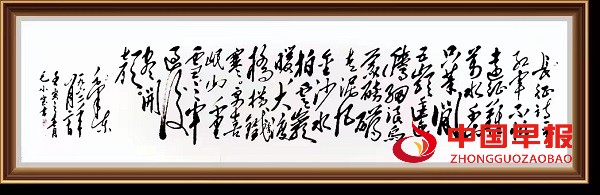 红军不怕
远征难
万水千山
只等闲
五岭逶迤
腾细浪乌
蒙磅礴
走泥丸
金沙水
拍云崖
暖大渡
桥横铁索
寒更喜
岷山千里
雪三军
过后
尽开
颜
毛泽东
中国早报
ZHONGGUOZAOBAO